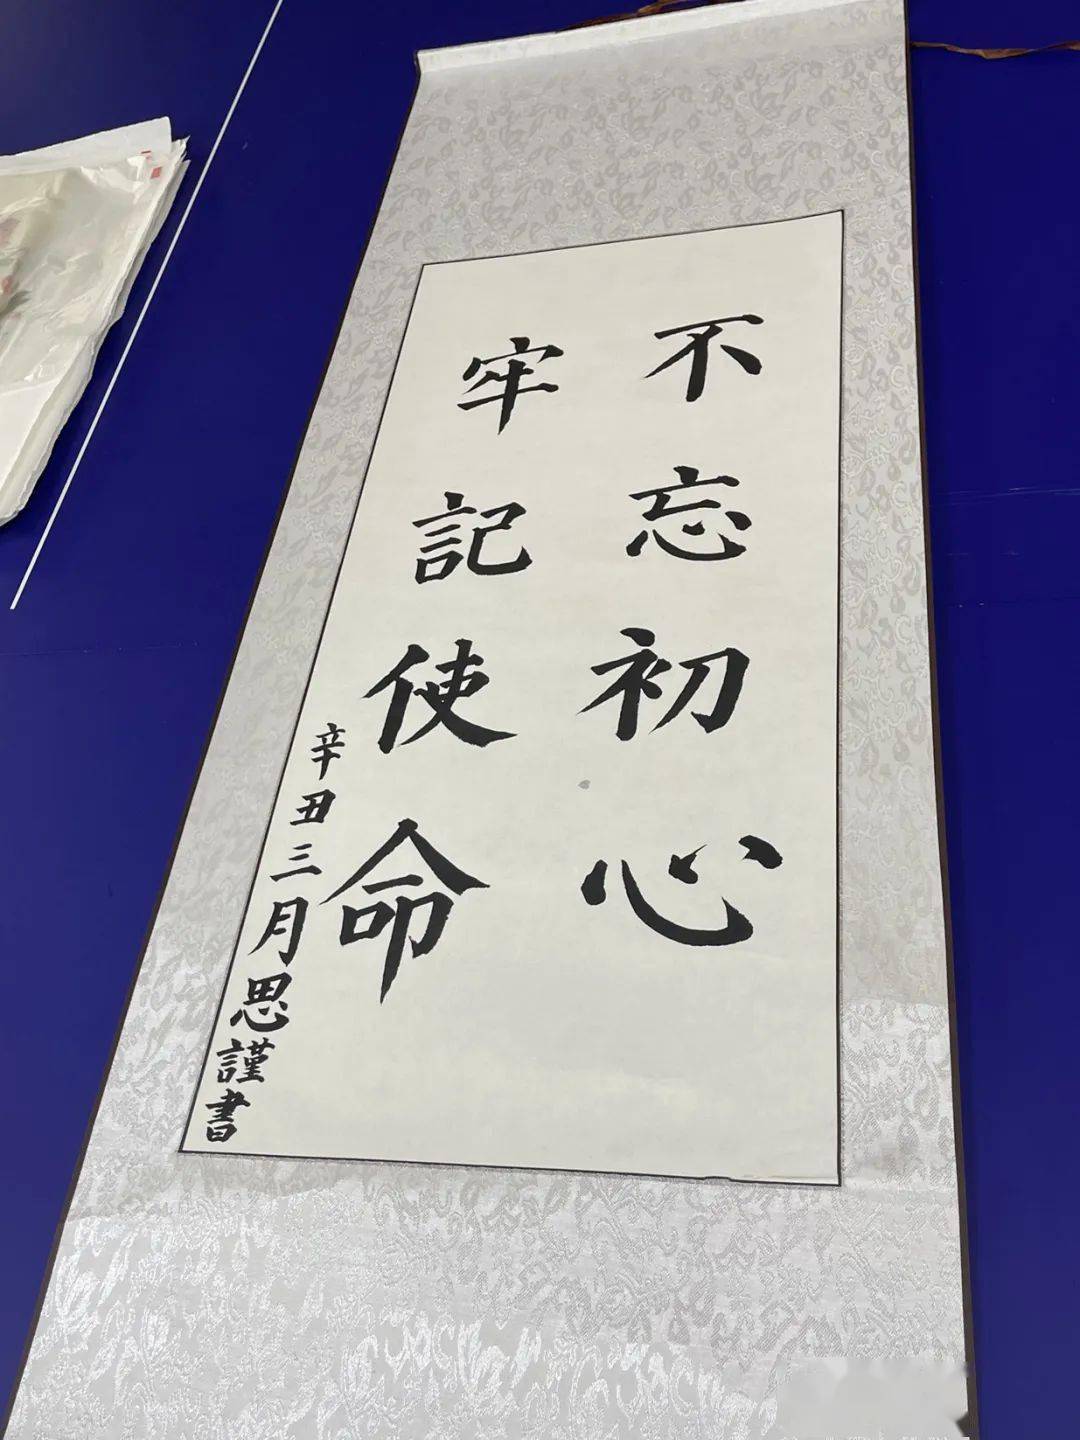 不忘初心
牢記使命
辛丑三月思謹書